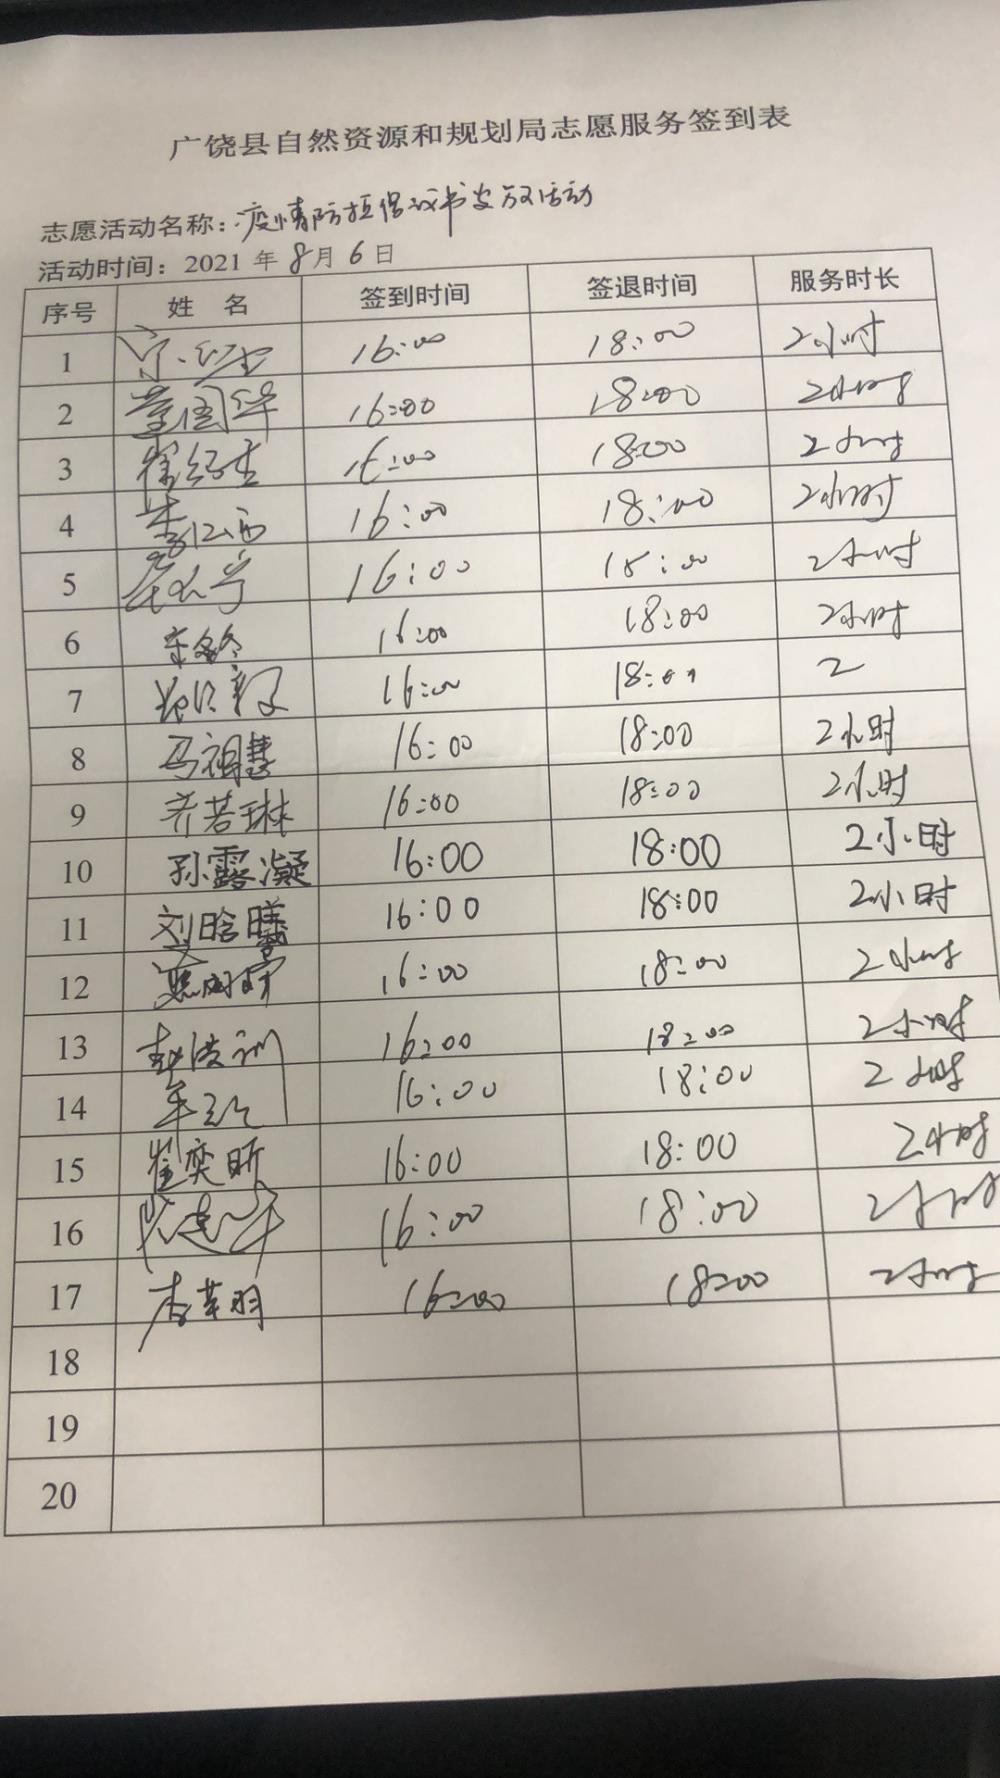 广饶县自然资源和规划局志愿服务签到表
志愿活动名称：疫情防控倡议书发放活动
活动时间：2021 年 8 月 6 日
序号 姓 名 签到时间 签退时间 服务时长
1 16:00 18:00 2小时
2 董国华 16:00 18:00 2小时
3 16:00 18:00 2小时
4 16:00 18:00 2小时
5 16:00 18:00 2小时
6 16:00 18:00 2小时
7 16:00 18:00 2
8 马祖慧 16:00 18:00 2小时
9 齐若琳 16:00 18:00 2小时
10 孙露凝 16:00 18:00 2小时
11 刘晗曦 16:00 18:00 2小时
12 16:00 18:00 2小时
13 16:00 18:00 2小时
14 16:00 18:00 2小时
15 崔奕昕 16:00 18:00 2小时
16 16:00 18:00 2小时
17 16:00 18:00 2小时
18
19
20